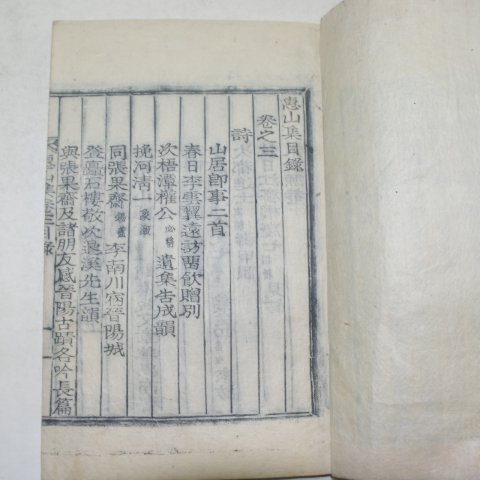 惠山集目錄
卷之三
詩
山居卽事二首
春日李雲翼遠訪留飮贈別
次梧潭權公必稱遺集告成韻
挽河清一
同張果齋錫藎李南川病晉陽城
登矗石樓敬次浪溪先生韻
與張果齋及諸朋友感晉陽古蹟各吟長篇
惠山集卷三目錄